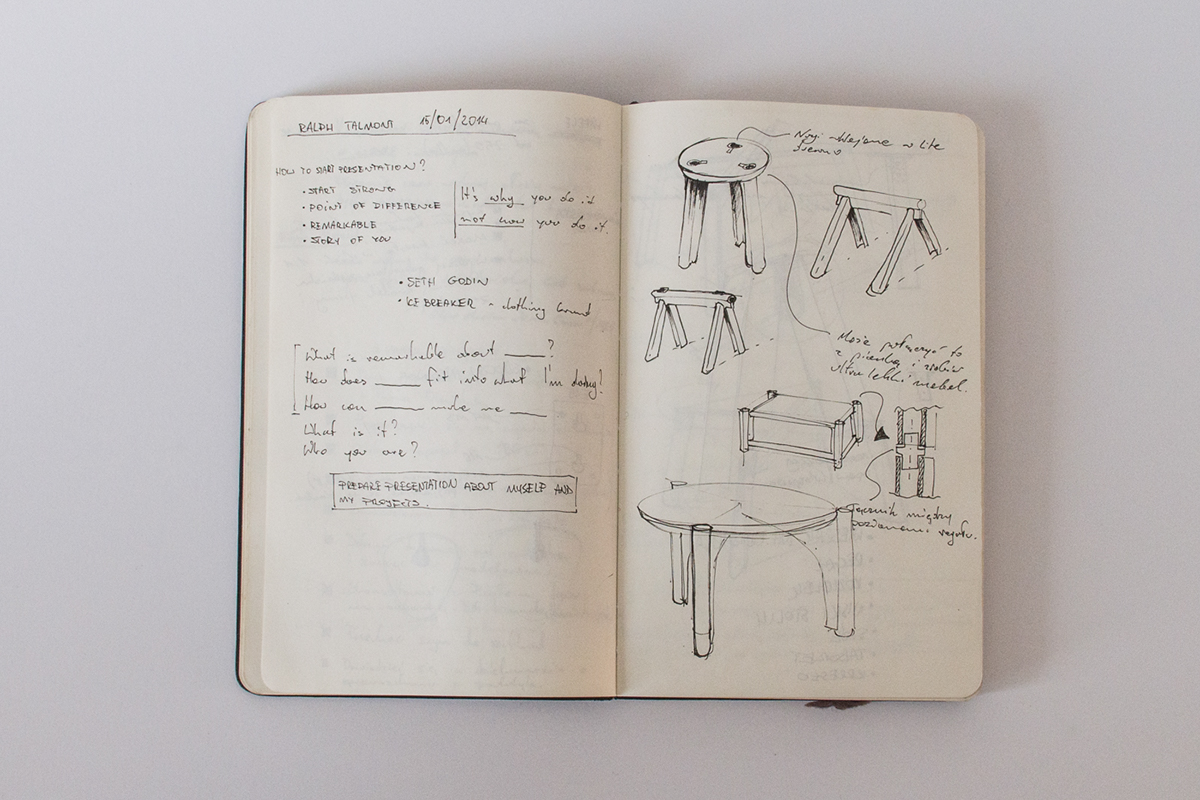 RALPH TALMONT 15/01/2014
HOW TO START PRESENTATION?
• START STRONG
• POINT OF DIFFERENCE
• REMARKABLE
• STORY OF YOU
It's why you do it
not how you do it.
• SETH GODIN
• ICEBREAKER - clothing brand
What is remarkable about ____?
How does ____ fit into what I'm doing?
How can ____ make me ____
What is it?
Who you are?
PREPARE PRESENTATION ABOUT MYSELF AND
MY PROJECTS.
Nogi wklejane w lite
drewno
Może połączyć to
z pianką i zrobić
ultra lekki mebel.
Łącznik między
poziomami regału.
• TABORET
• KRZESŁO